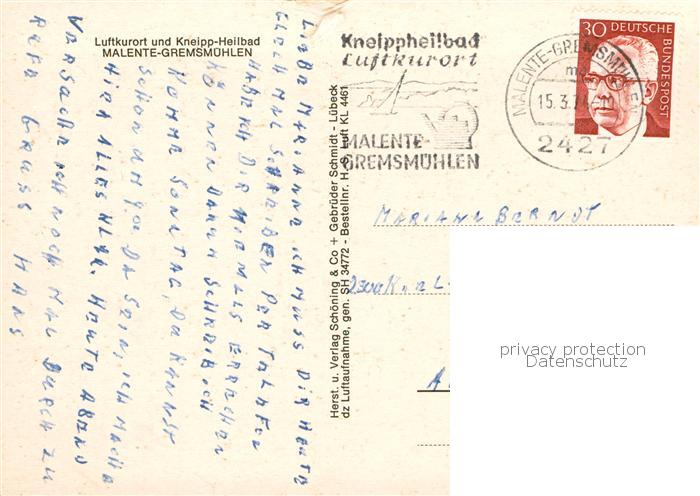 Luftkurort und Kneipp-Heilbad
MALENTE-GREMSMÜHLEN
LIEBE MARIANNE ICH MUSS DIR HEUTE
GLEICH MAL SCHREIBEN PER TELEFON
HABE ICH DIR NIEMALS ERREICHEN
KÖNNEN DARUM SCHREIB ICH
KOMME SONNTAG, DA KANNST
SCHON UM DA SEIN, ICH MACHE
HIER ALLES KLAR. HEUTE ABEND
VERSUCHE ICH NOCH MAL DURCH ZU
RUFE GRUSS HANS
Herst. u. Verlag Schöning & Co + Gebrüder Schmidt - Lübeck
dz Luftaufnahme, gen. SH 34772 - Bestellnr. Luft KL 4461
Kneippheilbad
Luftkurort
MALENTE-
GREMSMÜHLEN
MALENTE-GREMSMÜHLEN
15.3.
2427
30 DEUTSCHE
BUNDESPOST
MARIANN BERNDT
privacy protection
Datenschutz